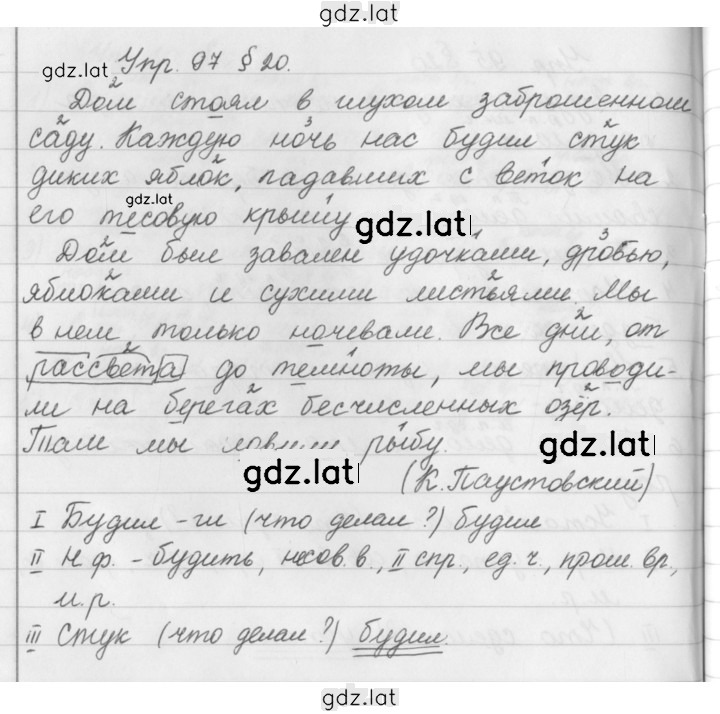 gdz.lat
gdz.lat
Упр. 97 § 20.
Дом стоял в глухом заброшенном
саду. Каждую ночь нас будил стук
диких яблок, падавших с веток на
gdz.lat
его тесовую крышу
gdz.lat
Дом был завален удочками, дробью,
яблоками и сухими листьями. Мы
в нем только ночевали. Все дни, от
рассвета до темноты, мы проводи-
ли на берегах бесчисленных озёр.
Там мы ловили рыбу.
gdz.lat
gdz.lat
(К. Паустовский)
I Будил - гл (что делал?) будил
II Н.ф. - будить, несов. в., II спр., ед. ч., прош. вр.,
м.р.
III Стук (что делал?) будил.
gdz.lat